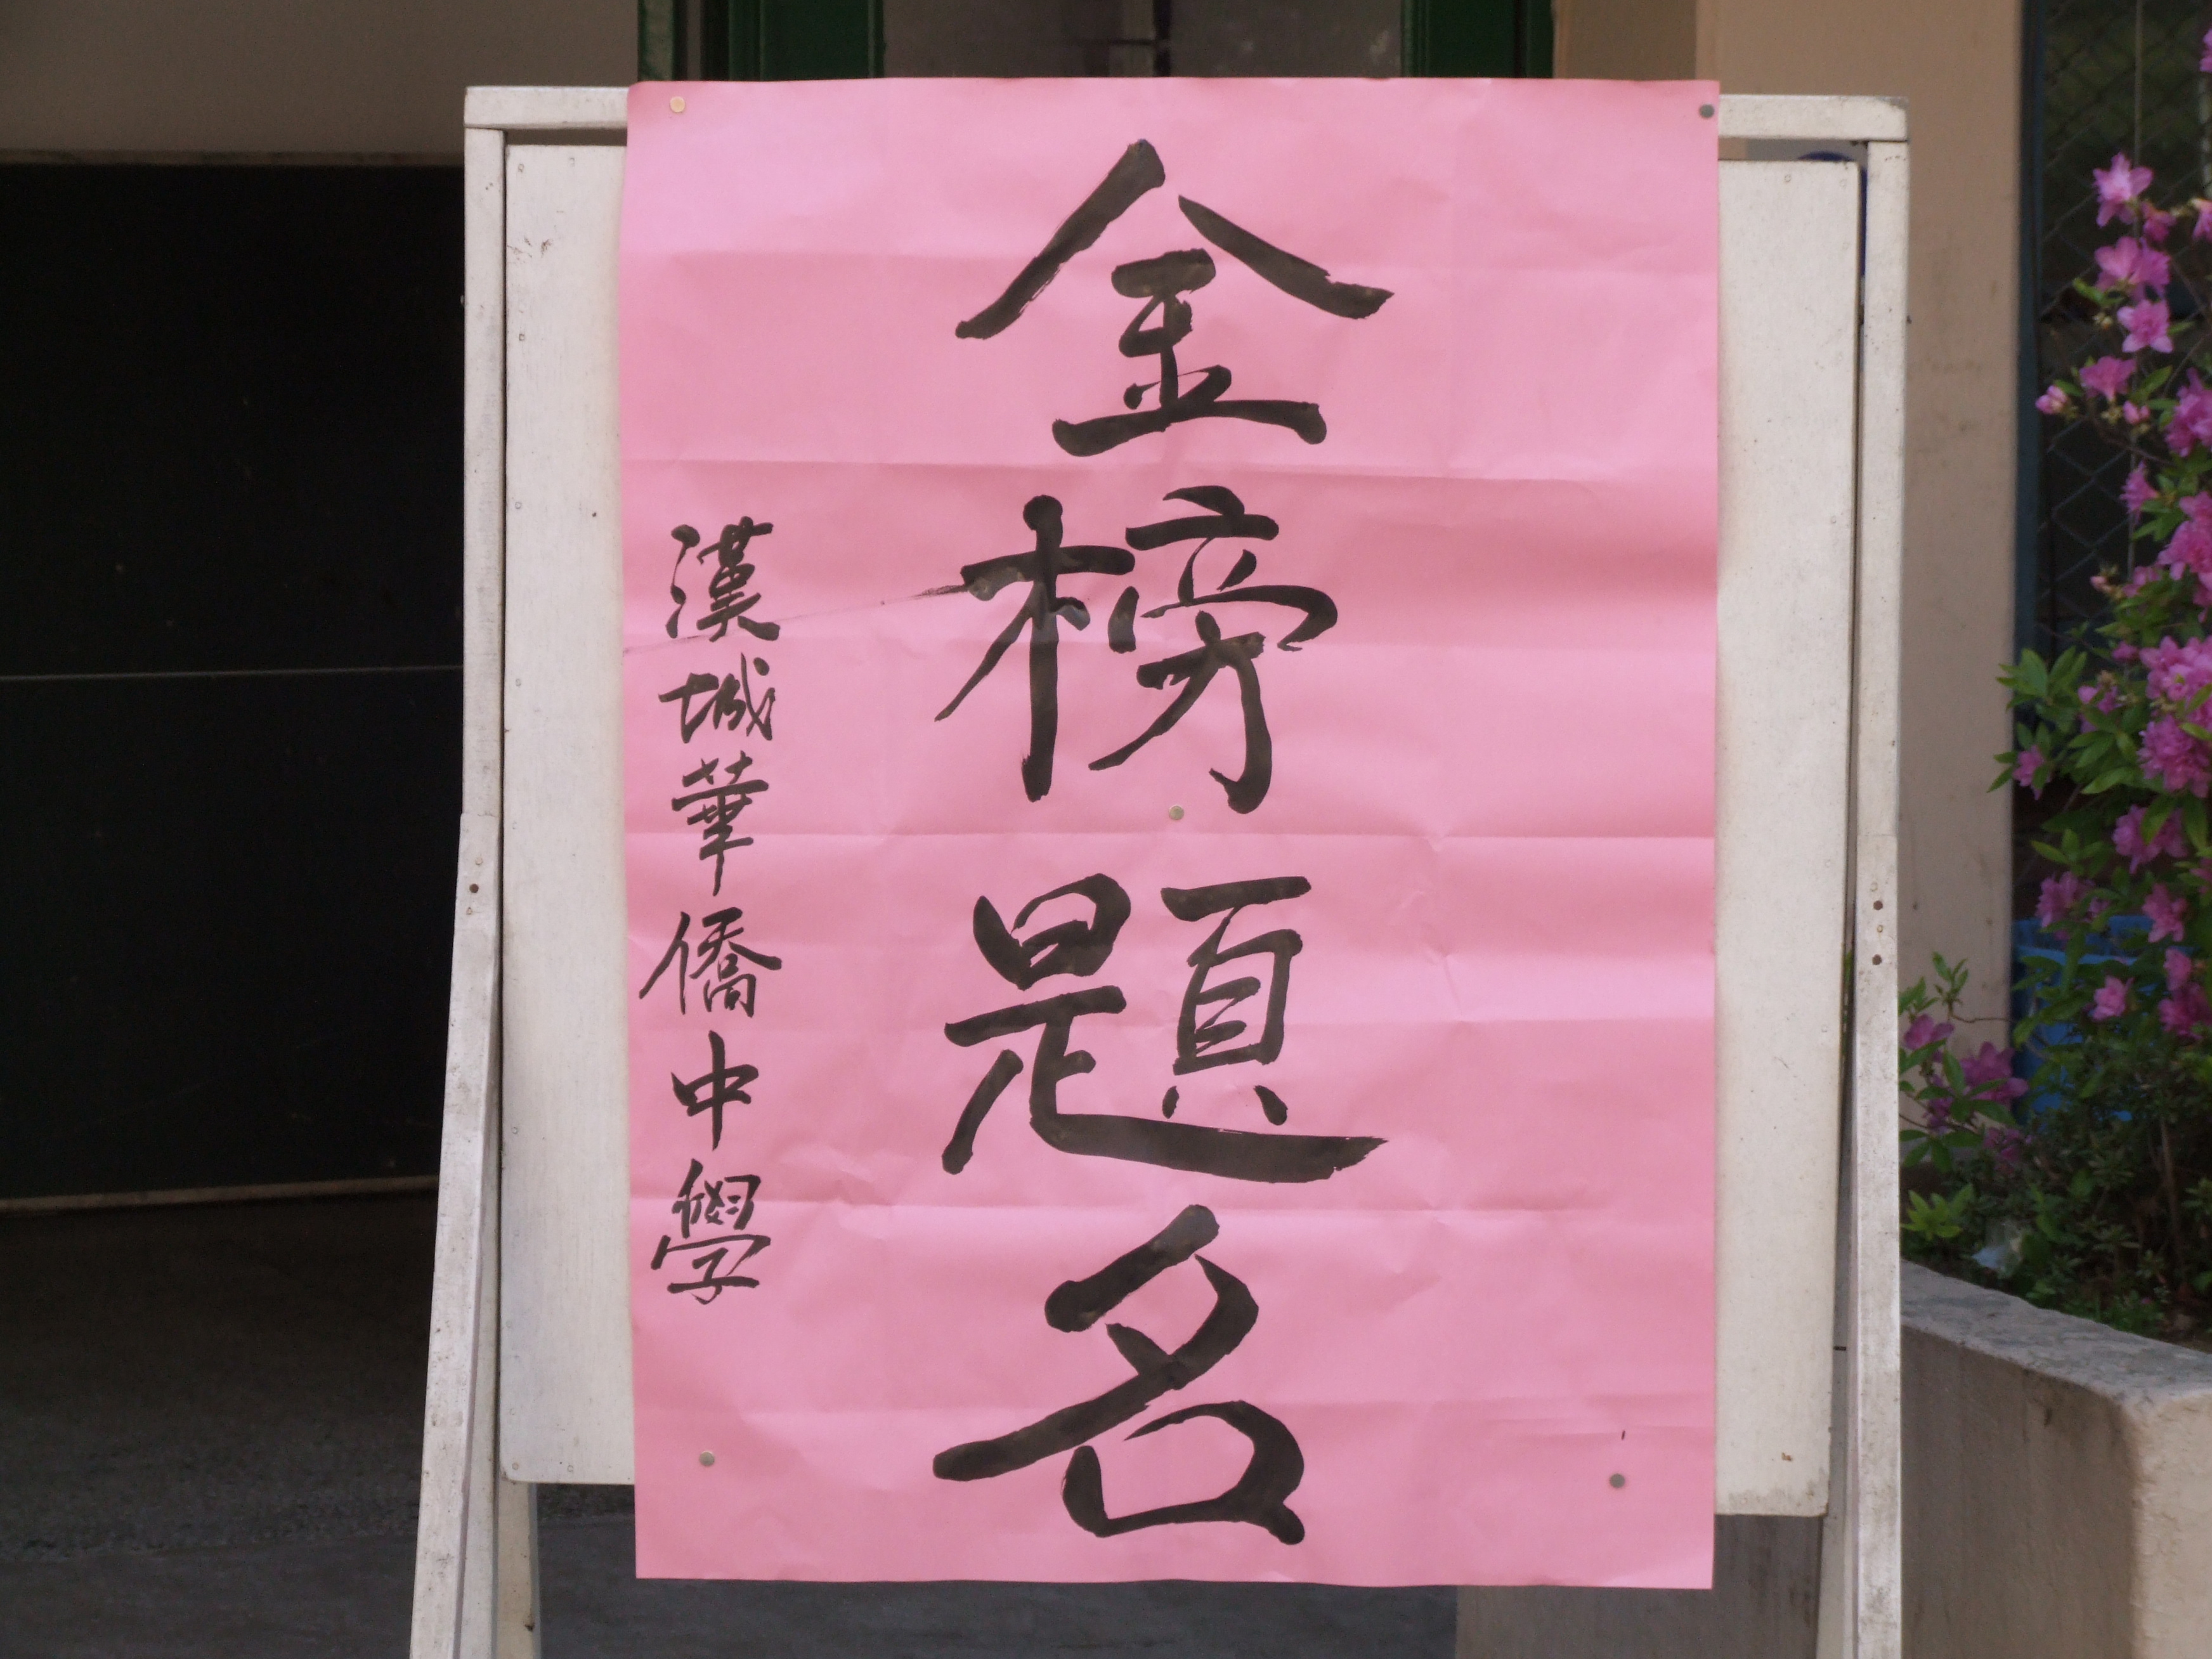 金榜題名
漢城華僑中學